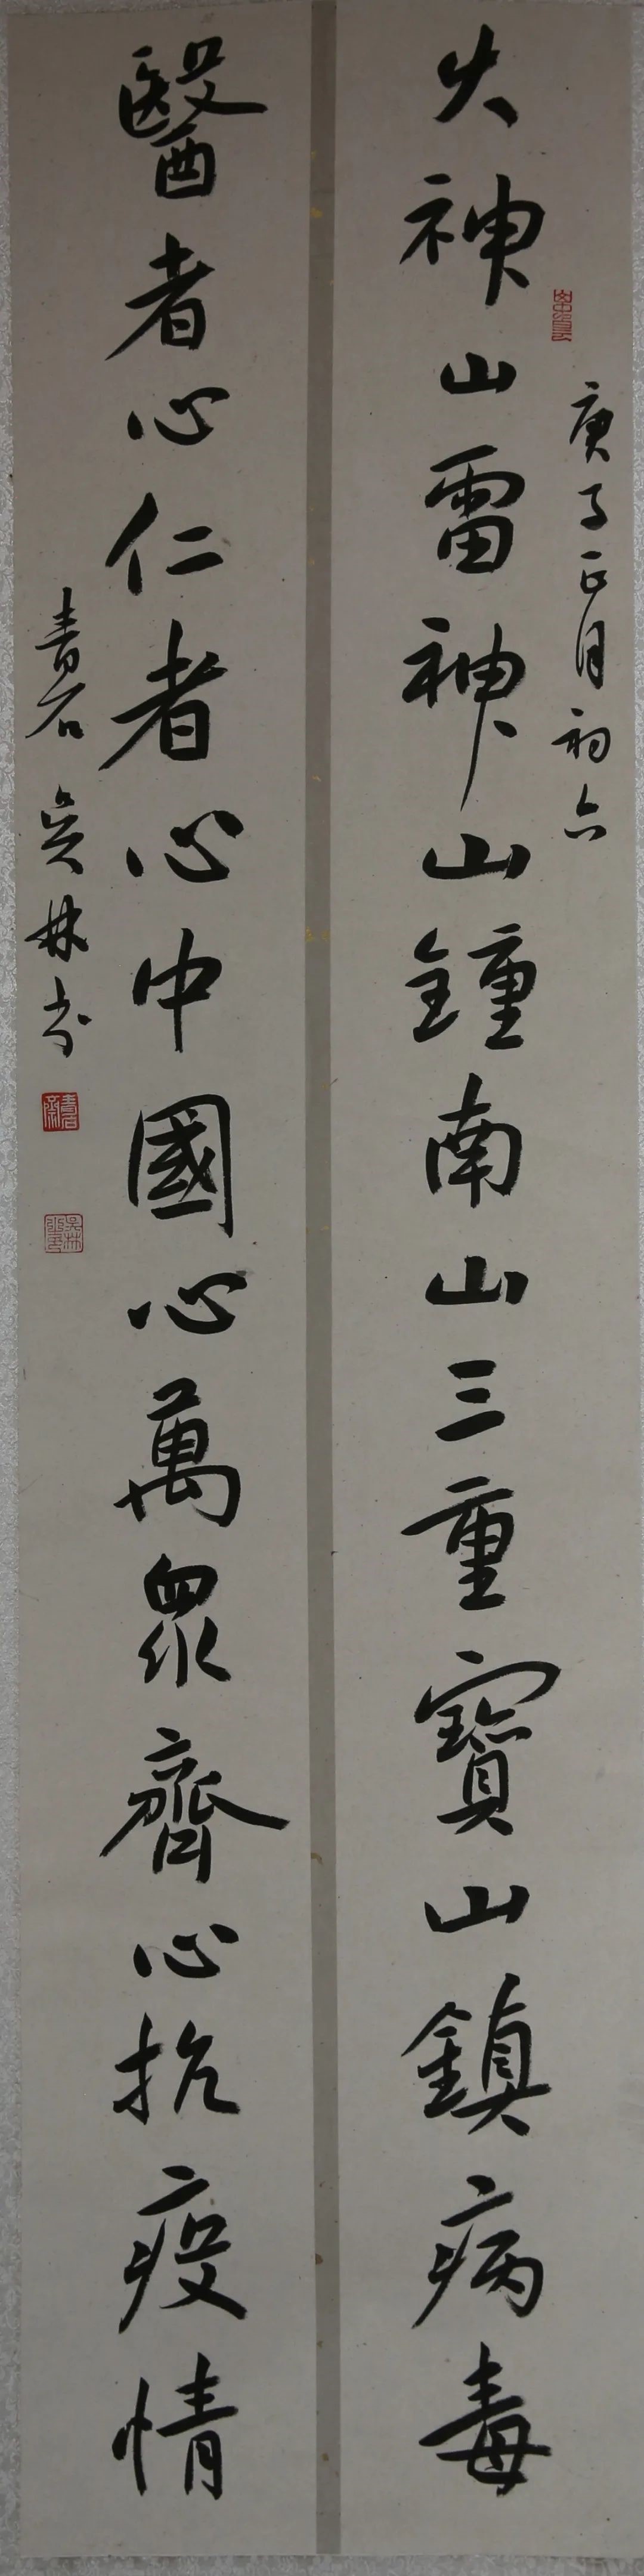 庚子正月初六
火神山雷神山鍾南山三重寶山鎮病毒
醫者心仁者心中國心萬眾齊心抗疫情
青石吳林書